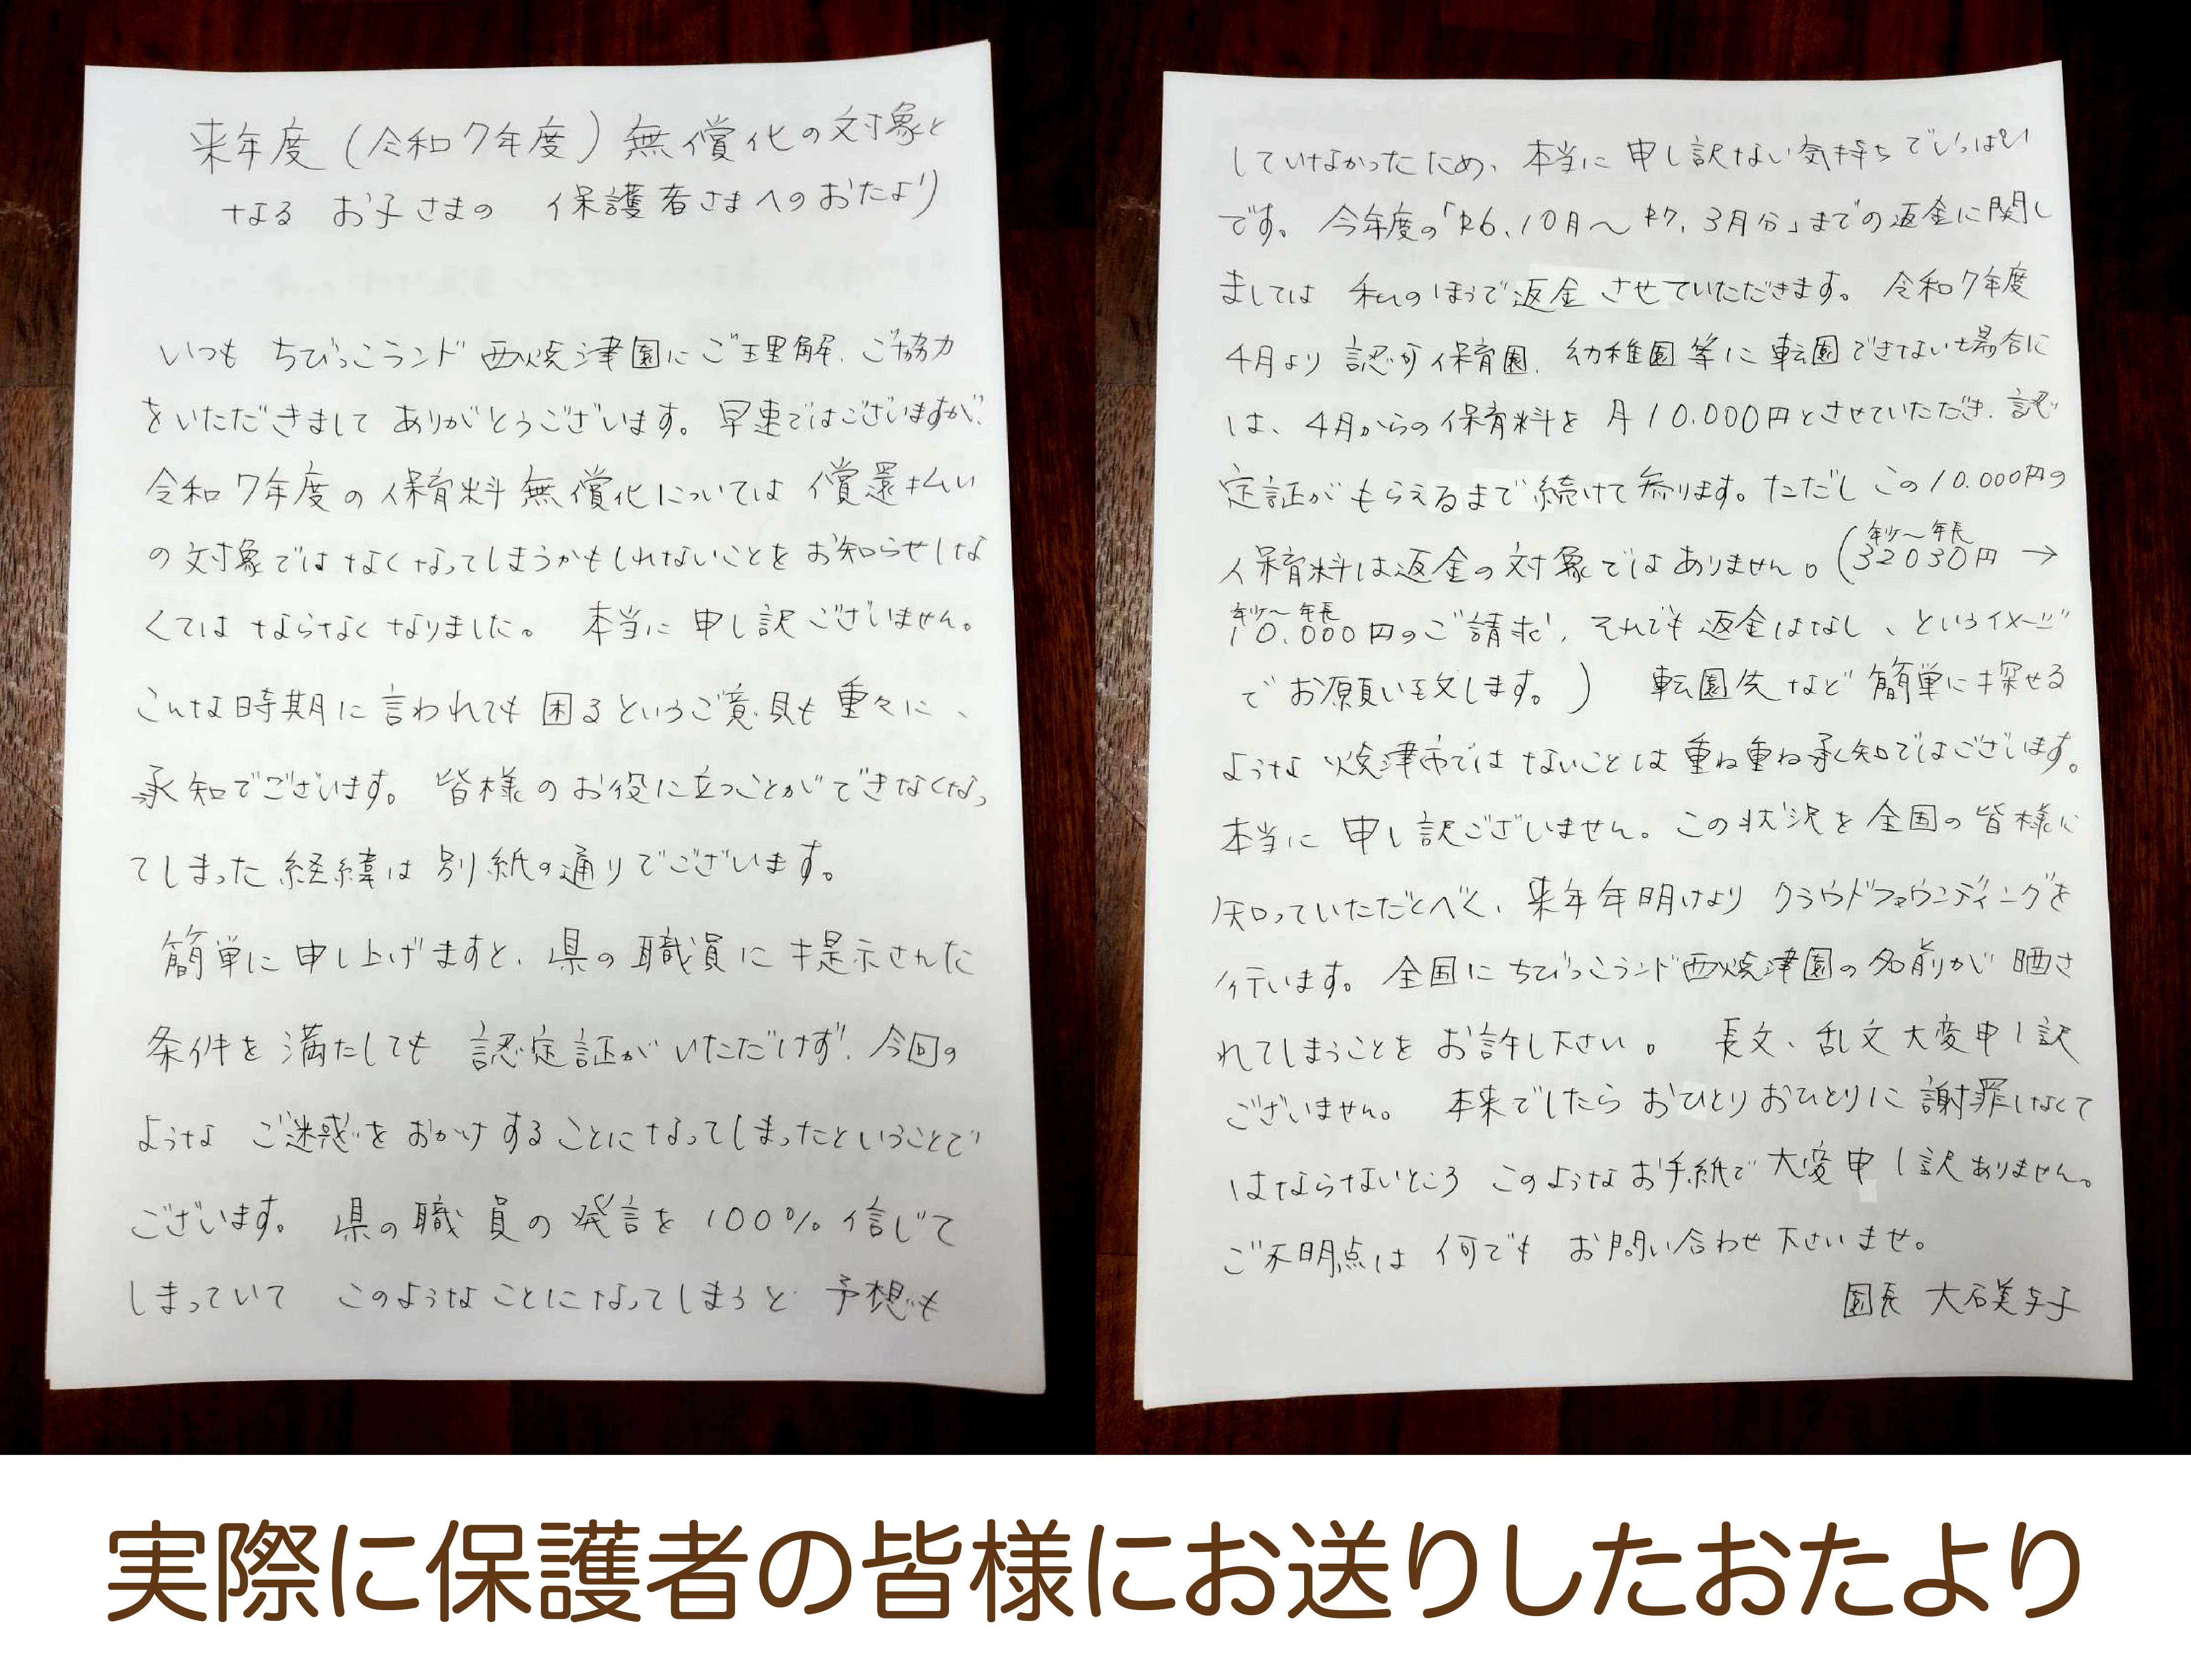 来年度(令和7年度)無償化の対象と
なる お子さまの 保護者さまへのおたより
いつも ちびっこランド 西焼津園にご理解、ご協力
をいただきまして ありがとうございます。早速ではございますが、
令和7年度の保育料無償化については償還払い
の対象ではなくなってしまうかもしれないことをお知らせしな
くてはならなくなりました。 本当に申し訳ございません。
こんな時期に言われても困るというご意見も重々に、
承知でございます。皆様のお役に立つことができなくなっ
てしまった経緯は別紙の通りでございます。
簡単に申し上げますと、県の職員に提示された
条件を満たしても認定証がいただけず、今回の
ような ご迷惑をおかけすることになってしまったということで
ございます。 県の職員の発言を100%信じて
しまっていて このようなことになってしまうと 予想も
していなかったため、本当に申し訳ない気持ちでいっぱい
です。 今年度の「R6.10月〜R7.3月分」までの返金に関し
ましては 私のほうで返金させていただきます。 令和7年度
4月より 認可保育園、幼稚園等に転園できない場合に
は、4月からの保育料を 月10.000円とさせていただき、認
定証がもらえるまで続けて参ります。ただし この10.000円の
保育料は返金の対象ではありません。(年少〜年長 32030円→
年少〜年長 10.000円のご請求、それでも返金はなし、というイメージ
でお願い致します。) 転園先など簡単に探せる
ような 焼津市ではないことは重ね重ね承知ではございます。
本当に申し訳ございません。この状況を全国の皆様に
知っていただくべく、来年年明けより クラウドファウンディングを
行います。全国にちびっこランド西焼津園の名前が晒さ
れてしまうことをお許し下さい。 長文、乱文大変申し訳
ございません。 本来でしたらおひとりおひとりに謝罪しなくて
はならないところ このようなお手紙で大変申し訳ありません。
ご不明点は 何でも お問い合わせ下さいませ。
園長 大石美
実際に保護者の皆様にお送りしたおたより